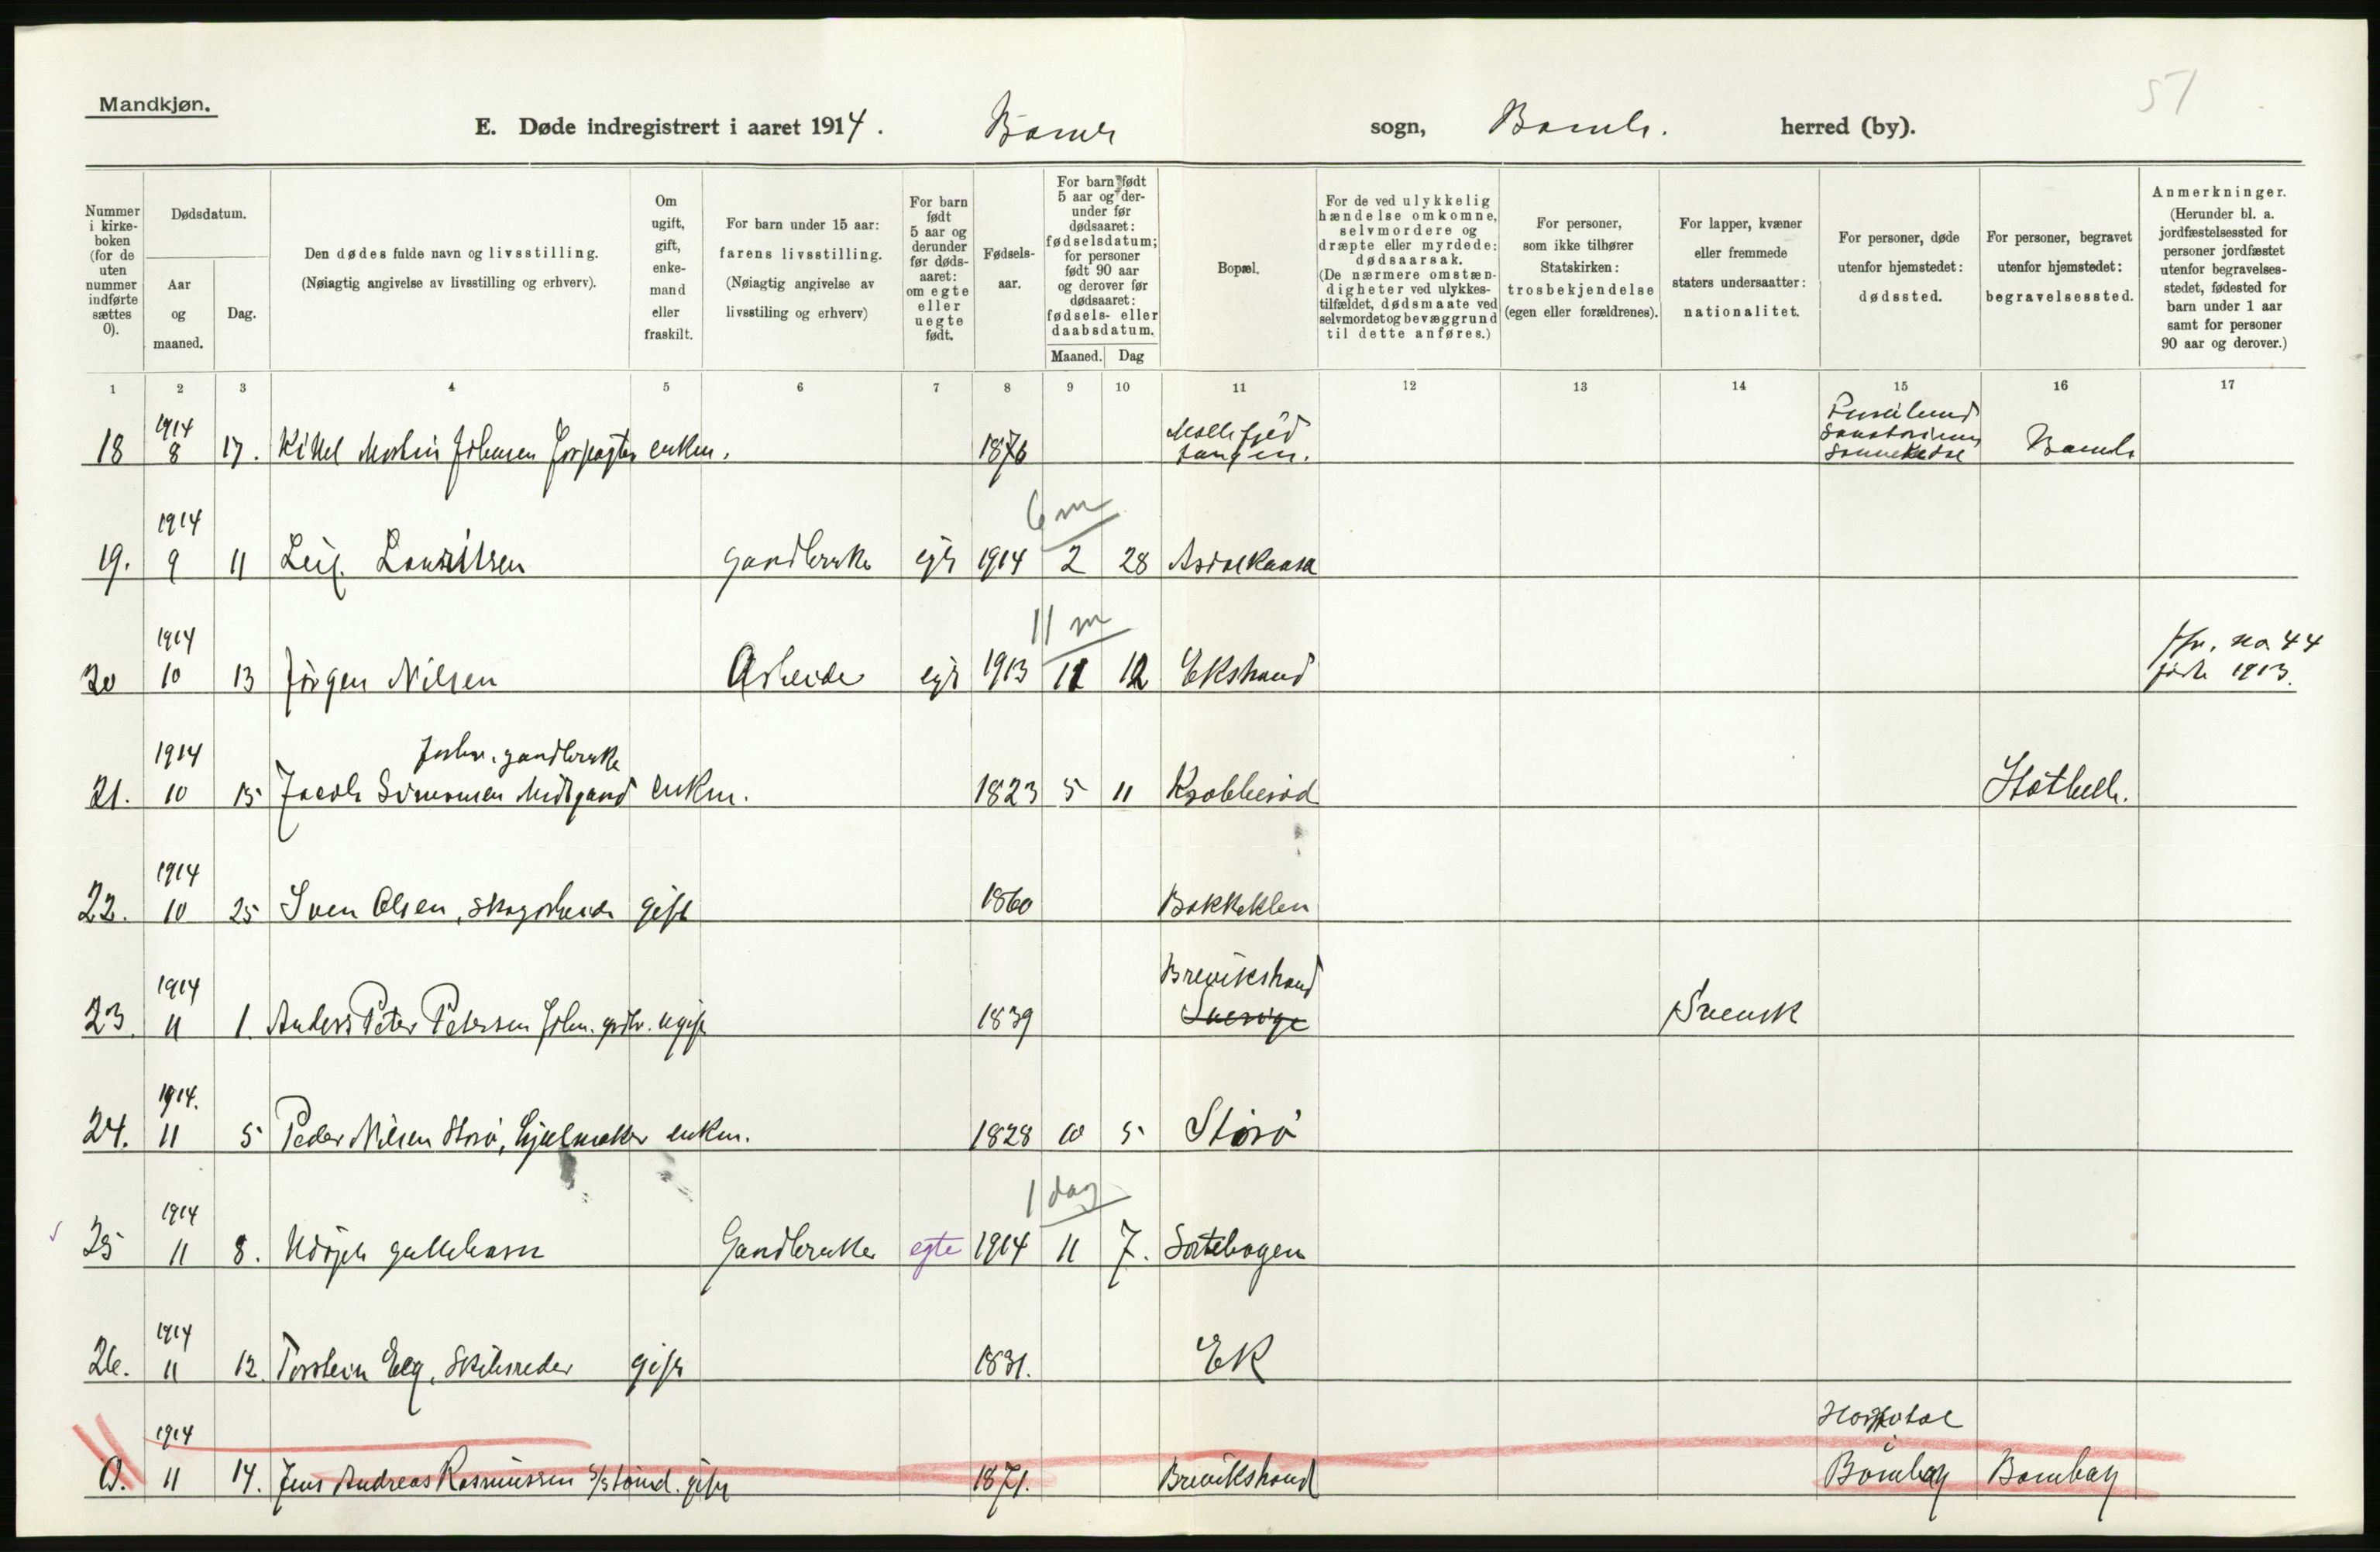 51
Mandkjøn.
E. Døde indregistrert i aaret 1914. Bamle sogn, Bamle. herred (by).
Nummer i kirkeboken (for de uten nummer indførte sættes 0).
Dødsdatum.
Aar og maaned.
Dag.
Den dødes fulde navn og livsstilling.
(Nøiagtig angivelse av livsstilling og erhverv).
Om ugift, gift, enkemand eller fraskilt.
For barn under 15 aar:
farens livsstilling.
(Nøiagtig angivelse av livsstiling og erhverv)
For barn født 5 aar og derunder før dødsaaret: om egte eller uegte født.
Fødselsaar.
For barn født 5 aar og derunder før dødsaaret: fødselsdatum; for personer født 90 aar og derover før dødsaaret: fødsels- eller daabsdatum.
Maaned. Dag
Bopæl.
For de ved ulykkelig hændelse omkomne, selvmordere og dræpte eller myrdede: dødsaarsak.
(De nærmere omstændigheter ved ulykkestilfældet, dødsmaate ved selvmordet og bevæggrund til dette anføres.)
For personer, som ikke tilhører Statskirken: trosbekjendelse (egen eller forældrenes).
For lapper, kvæner eller fremmede staters undersaatter: nationalitet.
For personer, døde utenfor hjemstedet: dødssted.
For personer, begravet utenfor hjemstedet: begravelsessted.
Anmerkninger.
(Herunder bl. a. jordfæstelsessted for personer jordfæstet utenfor begravelsesstedet, fødested for barn under 1 aar samt for personer 90 aar og derover.)
1 2 3 4 5 6 7 8 9 10 11 12 13 14 15 16 17
18 1914 8 17. Kittel Martin Johnsen Forpagter enkm. 1876 tangen. Sanatorium Sannekedal Bamle
6 m
19. 1914 9 11 Leif Lauritsen gaardbruker egte 1914 2 28 Asdalkaasa
11 m
20 1914 10 13 Jörgen Nilsen Arbeider egte 1913 11 12 Ekstrand Jfr. no 44 födte 1913.
21. 1914 10 15 Jacob Simonsen Midgaard forhv. gaardbruker enkm. 1823 5 11 Krabberød Stathelle.
22. 1914 10 25 Sven Olsen, skogarbeider gift 1860 Bakkeklen
23. 1914 11 1. Anders Peter Petersen ugift 1839 Brevikstrand Sverige Svensk
24. 1914. 11 5 Peder Nilsen Storö, hjulmaker enkm. 1828 10 5 Storö
1 dag
25 1914 11 8. Udöpt guttebarn Gaardbruker egte 1914 11 7. Sortebogen
26. 1914 11 12. Torstein Eeg, Skibsreder gift 1831. EK
0. 1914 11 14. Jens Andreas Rasmussen gift 1871. Brevikstrand Hospital i Bombay Bombay